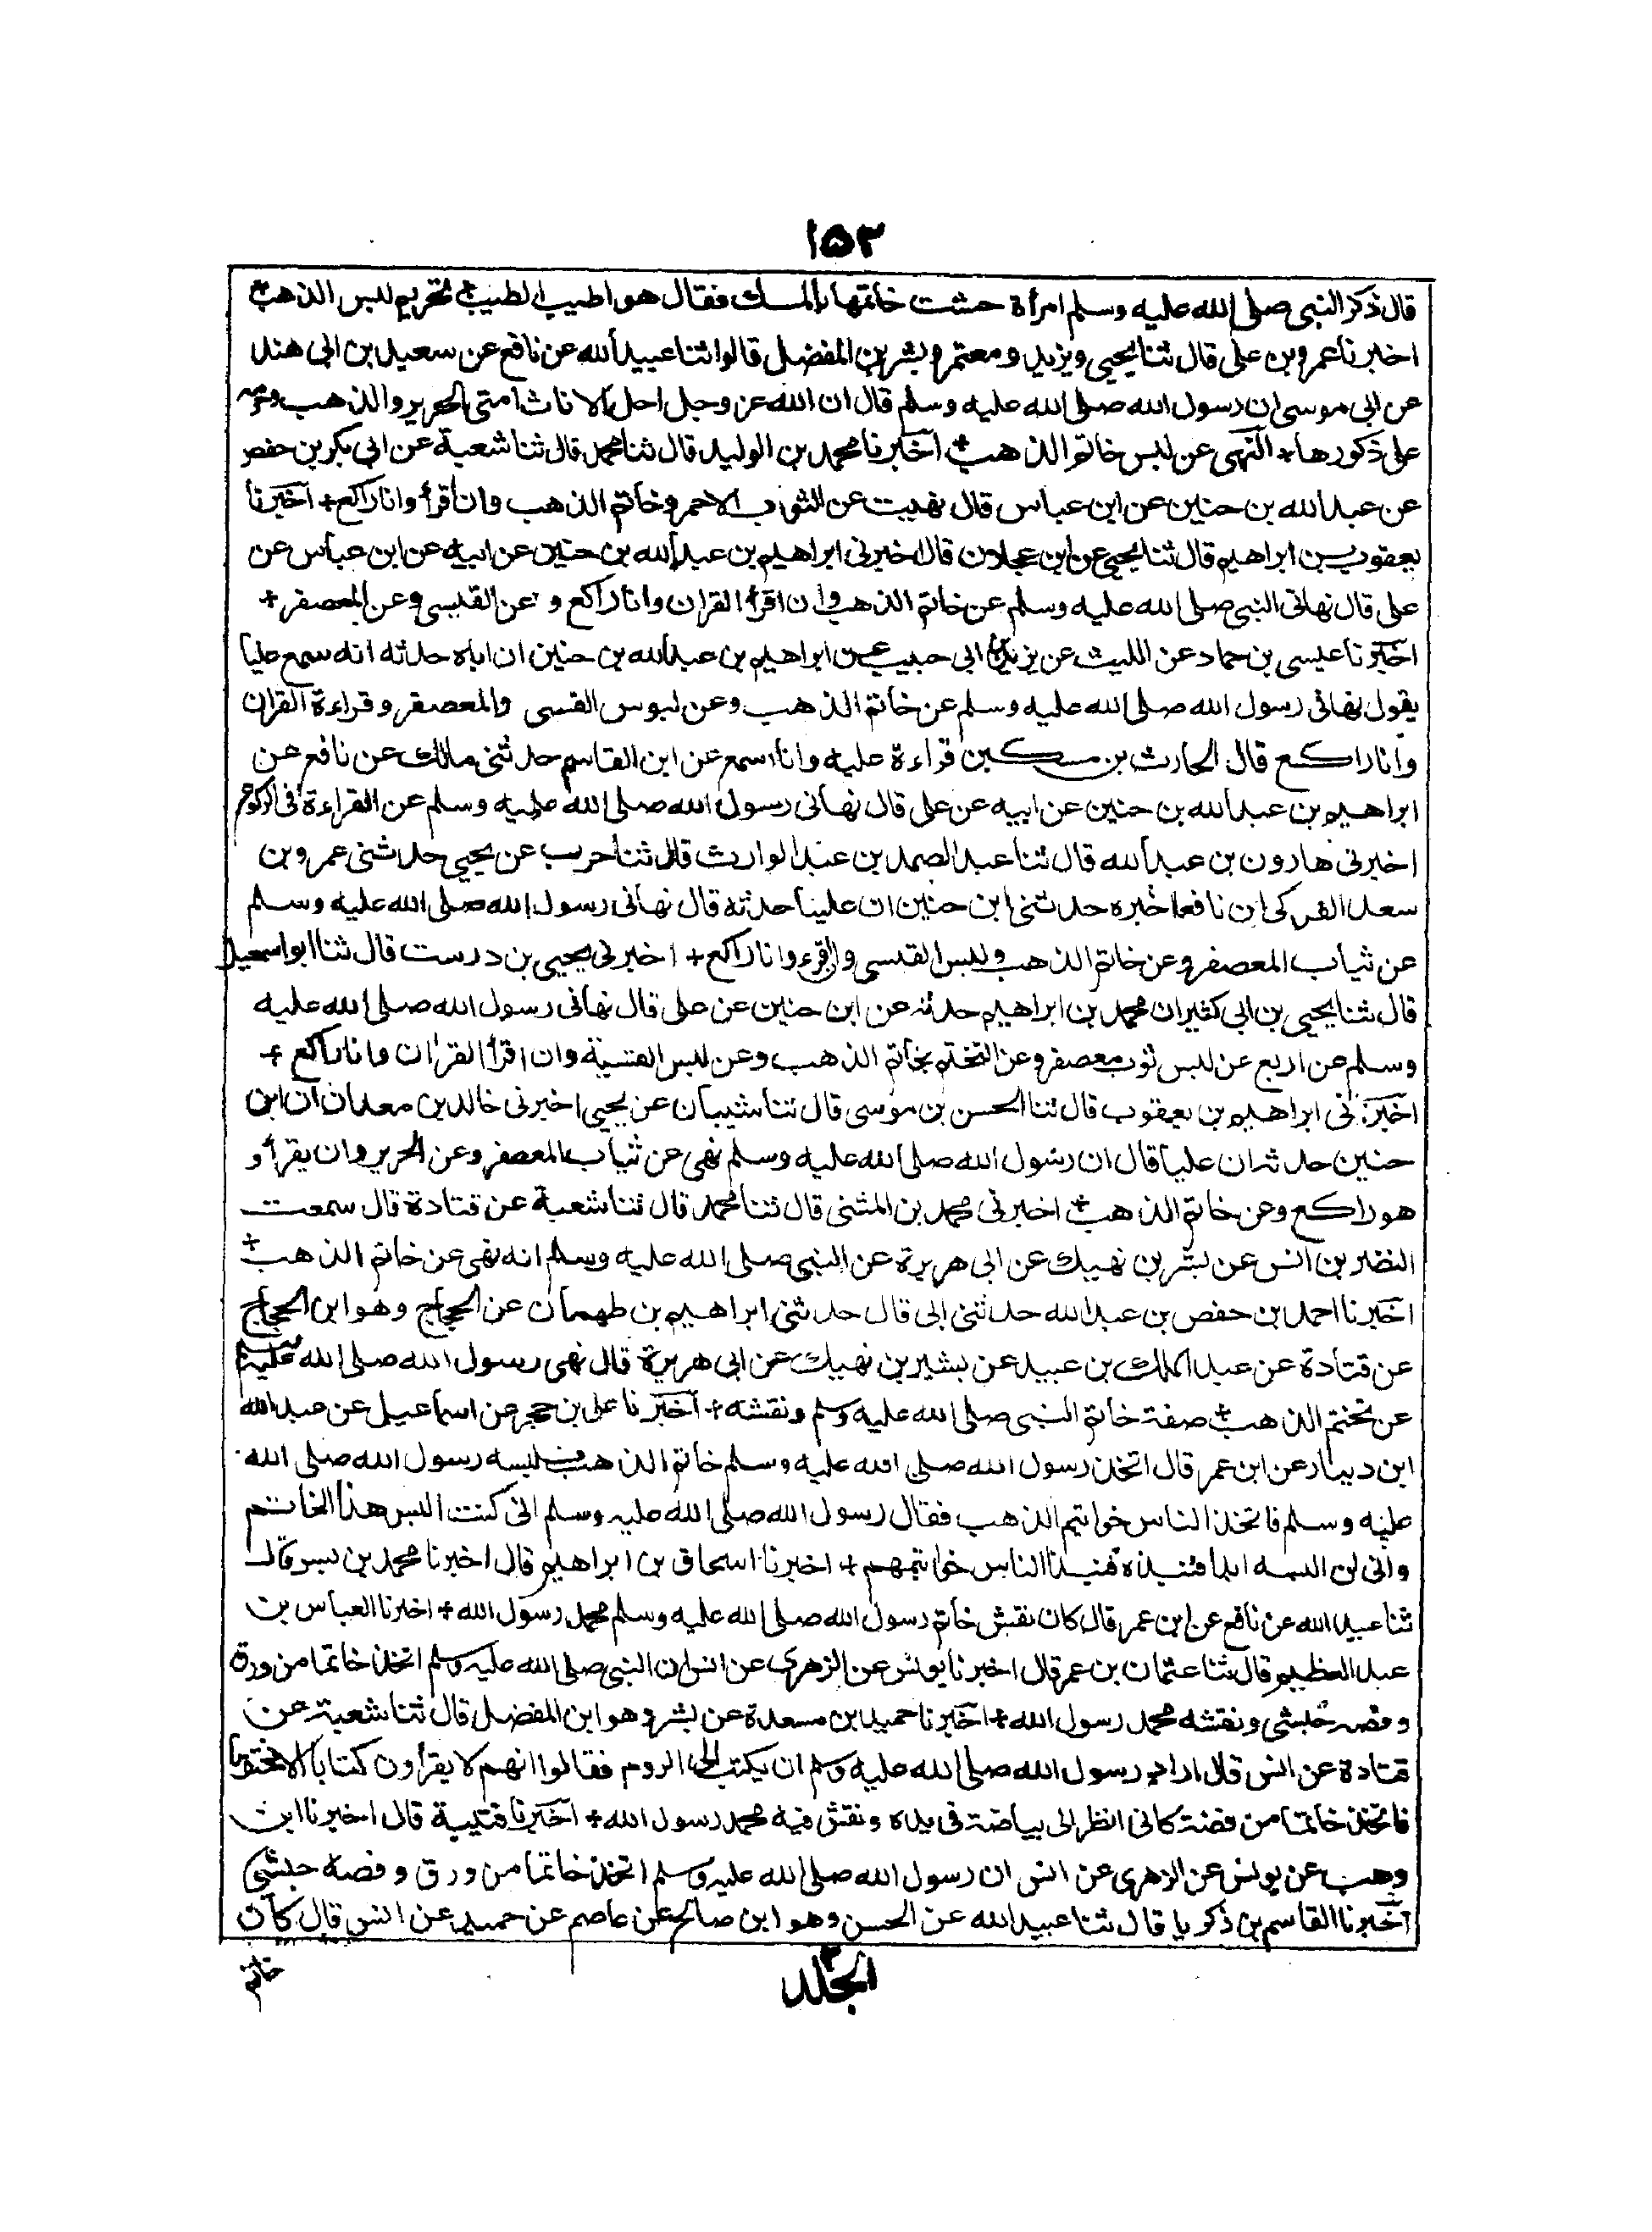 ١٥٣
قال ذكر النبى صلى الله عليه وسلم امرأة حشت خاتمها بالمسك فقال هو اطيب الطيب + تحريم لبس الذهب +
اخبرنا عمرو بن على قال ثنا يحيى ويزيد ومعتمر وبشر بن المفضل قالوا ثنا عبيد الله عن نافع عن سعيد بن ابى هند
عن ابى موسى ان رسول الله صلى الله عليه وسلم قال ان الله عز وجل احل لاناث امتى الحرير والذهب وحرمه
على ذكورها + النهى عن لبس خاتم الذهب + اخبرنا محمد بن الوليد قال ثنا محمد قال ثنا شعبة عن ابى بكر بن حفص
عن عبد الله بن حنين عن ابن عباس قال نهيت عن الثوب الاحمر وخاتم الذهب وان أقرأ وانا راكع + اخبرنا
يعقوب بن ابراهيم قال ثنا يحيى عن ابن عجلان قال اخبرنى ابراهيم بن عبد الله بن حنين عن ابيه عن ابن عباس عن
على قال نهانى النبى صلى الله عليه وسلم عن خاتم الذهب وان اقرأ القران وانا راكع وعن القسى وعن المعصفر +
اخبرنا عيسى بن حماد عن الليث عن يزيد بن ابى حبيب عن ابراهيم بن عبد الله بن حنين ان اباه حدثه انه سمع عليا
يقول نهانى رسول الله صلى الله عليه وسلم عن خاتم الذهب وعن لبوس القسى والمعصفر وقراءة القران
وانا راكع قال الحارث بن مسكين قراءة عليه وانا اسمع عن ابن القاسم حدثنى مالك عن نافع عن
ابراهيم بن عبد الله بن حنين عن ابيه عن على قال نهانى رسول الله صلى الله عليه وسلم عن القراءة فى الركوع
اخبرنى هارون بن عبد الله قال ثنا عبد الصمد بن عبد الوارث قال ثنا حرب عن يحيى حدثنى عمرو بن
سعد الفدكى ان نافعا اخبره حدثنى ابن حنين ان عليا حدثه قال نهانى رسول الله صلى الله عليه وسلم
عن ثياب المعصفر وعن خاتم الذهب ولبس القسى وان اقرء وانا راكع + اخبرنى يحيى بن درست قال ثنا ابو اسمعيل
قال ثنا يحيى بن ابى كثير ان محمد بن ابراهيم حدثه عن ابن حنين عن على قال نهانى رسول الله صلى الله عليه
وسلم عن اربع عن لبس ثوب معصفر وعن التختم بخاتم الذهب وعن لبس القسية وان اقرأ القران وانا راكع +
اخبرنى ابراهيم بن يعقوب قال ثنا الحسن بن موسى قال ثنا شيبان عن يحيى اخبرنى خالد بن معدان ان ابن
حنين حدثه ان عليا قال ان رسول الله صلى الله عليه وسلم نهى عن ثياب المعصفر وعن الحرير وان يقرأ و
هو راكع وعن خاتم الذهب + اخبرنى محمد بن المثنى قال ثنا محمد قال ثنا شعبة عن قتادة قال سمعت
النضر بن انس عن بشر بن نهيك عن ابى هريرة عن النبى صلى الله عليه وسلم انه نهى عن خاتم الذهب +
اخبرنا احمد بن حفص بن عبد الله حدثنى ابى قال حدثنى ابراهيم بن طهمان عن الحجاج وهو ابن الحجاج
عن قتادة عن عبد الملك بن عبيد عن بشير بن نهيك عن ابى هريرة قال نهى رسول الله صلى الله عليه وسلم
عن تختم الذهب + صفة خاتم النبى صلى الله عليه وسلم ونقشه + اخبرنا على بن حجر عن اسماعيل عن عبد الله
ابن دينار عن ابن عمر قال اتخذ رسول الله صلى الله عليه وسلم خاتم الذهب فلبسه رسول الله صلى الله
عليه وسلم فاتخذ الناس خواتيم الذهب فقال رسول الله صلى الله عليه وسلم انى كنت البس هذا الخاتم
وانى لن البسه ابدا فنبذه فنبذ الناس خواتيمهم + اخبرنا اسحاق بن ابراهيم قال اخبرنا محمد بن بسر قال
ثنا عبيد الله عن نافع عن ابن عمر قال كان نقش خاتم رسول الله صلى الله عليه وسلم محمد رسول الله + اخبرنا العباس بن
عبد العظيم قال ثنا عثمان بن عمر قال اخبرنا يونس عن الزهرى عن انس ان النبى صلى الله عليه وسلم اتخذ خاتما من ورق
وفصه حبشى ونقشه محمد رسول الله + اخبرنا حميد بن مسعدة عن بشر وهو ابن المفضل قال ثنا شعبة عن
قتادة عن انس قال اراد رسول الله صلى الله عليه وسلم ان يكتب الى الروم فقالوا انهم لا يقرأون كتابا الا مختوما
فاتخذ خاتما من فضة كانى انظر الى بياضه فى يده ونقش فيه محمد رسول الله + اخبرنا قتيبة قال اخبرنا ابن
وهب عن يونس عن الزهرى عن انس ان رسول الله صلى الله عليه وسلم اتخذ خاتما من ورق وفصه حبشى
اخبرنا القاسم بن ذكريا قال ثنا عبيد الله عن الحسن وهو ابن صالح عن عاصم عن حميد عن انس قال كان
خاتم
الجلد ٢